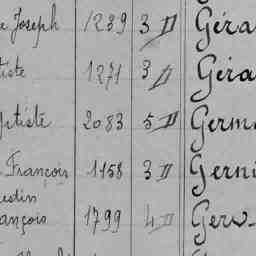 Joseph 1239 3 D Géra
tiste 1271 3 D Géra
ptiste 2083 5 D Germ
François 1158 3 D Gerni
ustin
ançois 1799 4 D Gerv